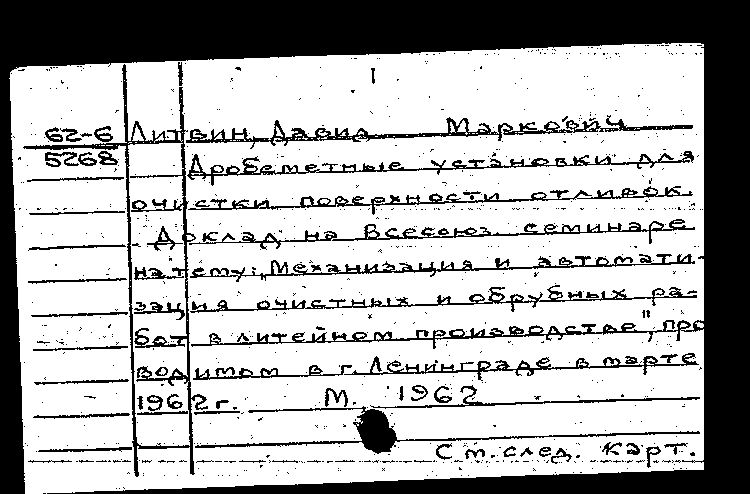 I
62-6 Литвин, Давид Маркович
5268 Дробеметные установки для
очистки поверхности отливок.
Доклад на Всесоюз. семинаре
на тему: „Механизация и автомати-
зация очистных и обрубных ра-
бот в литейном производстве", про
водимом в г. Ленинграде в марте
1962 г. М. 1962
См. след. карт.